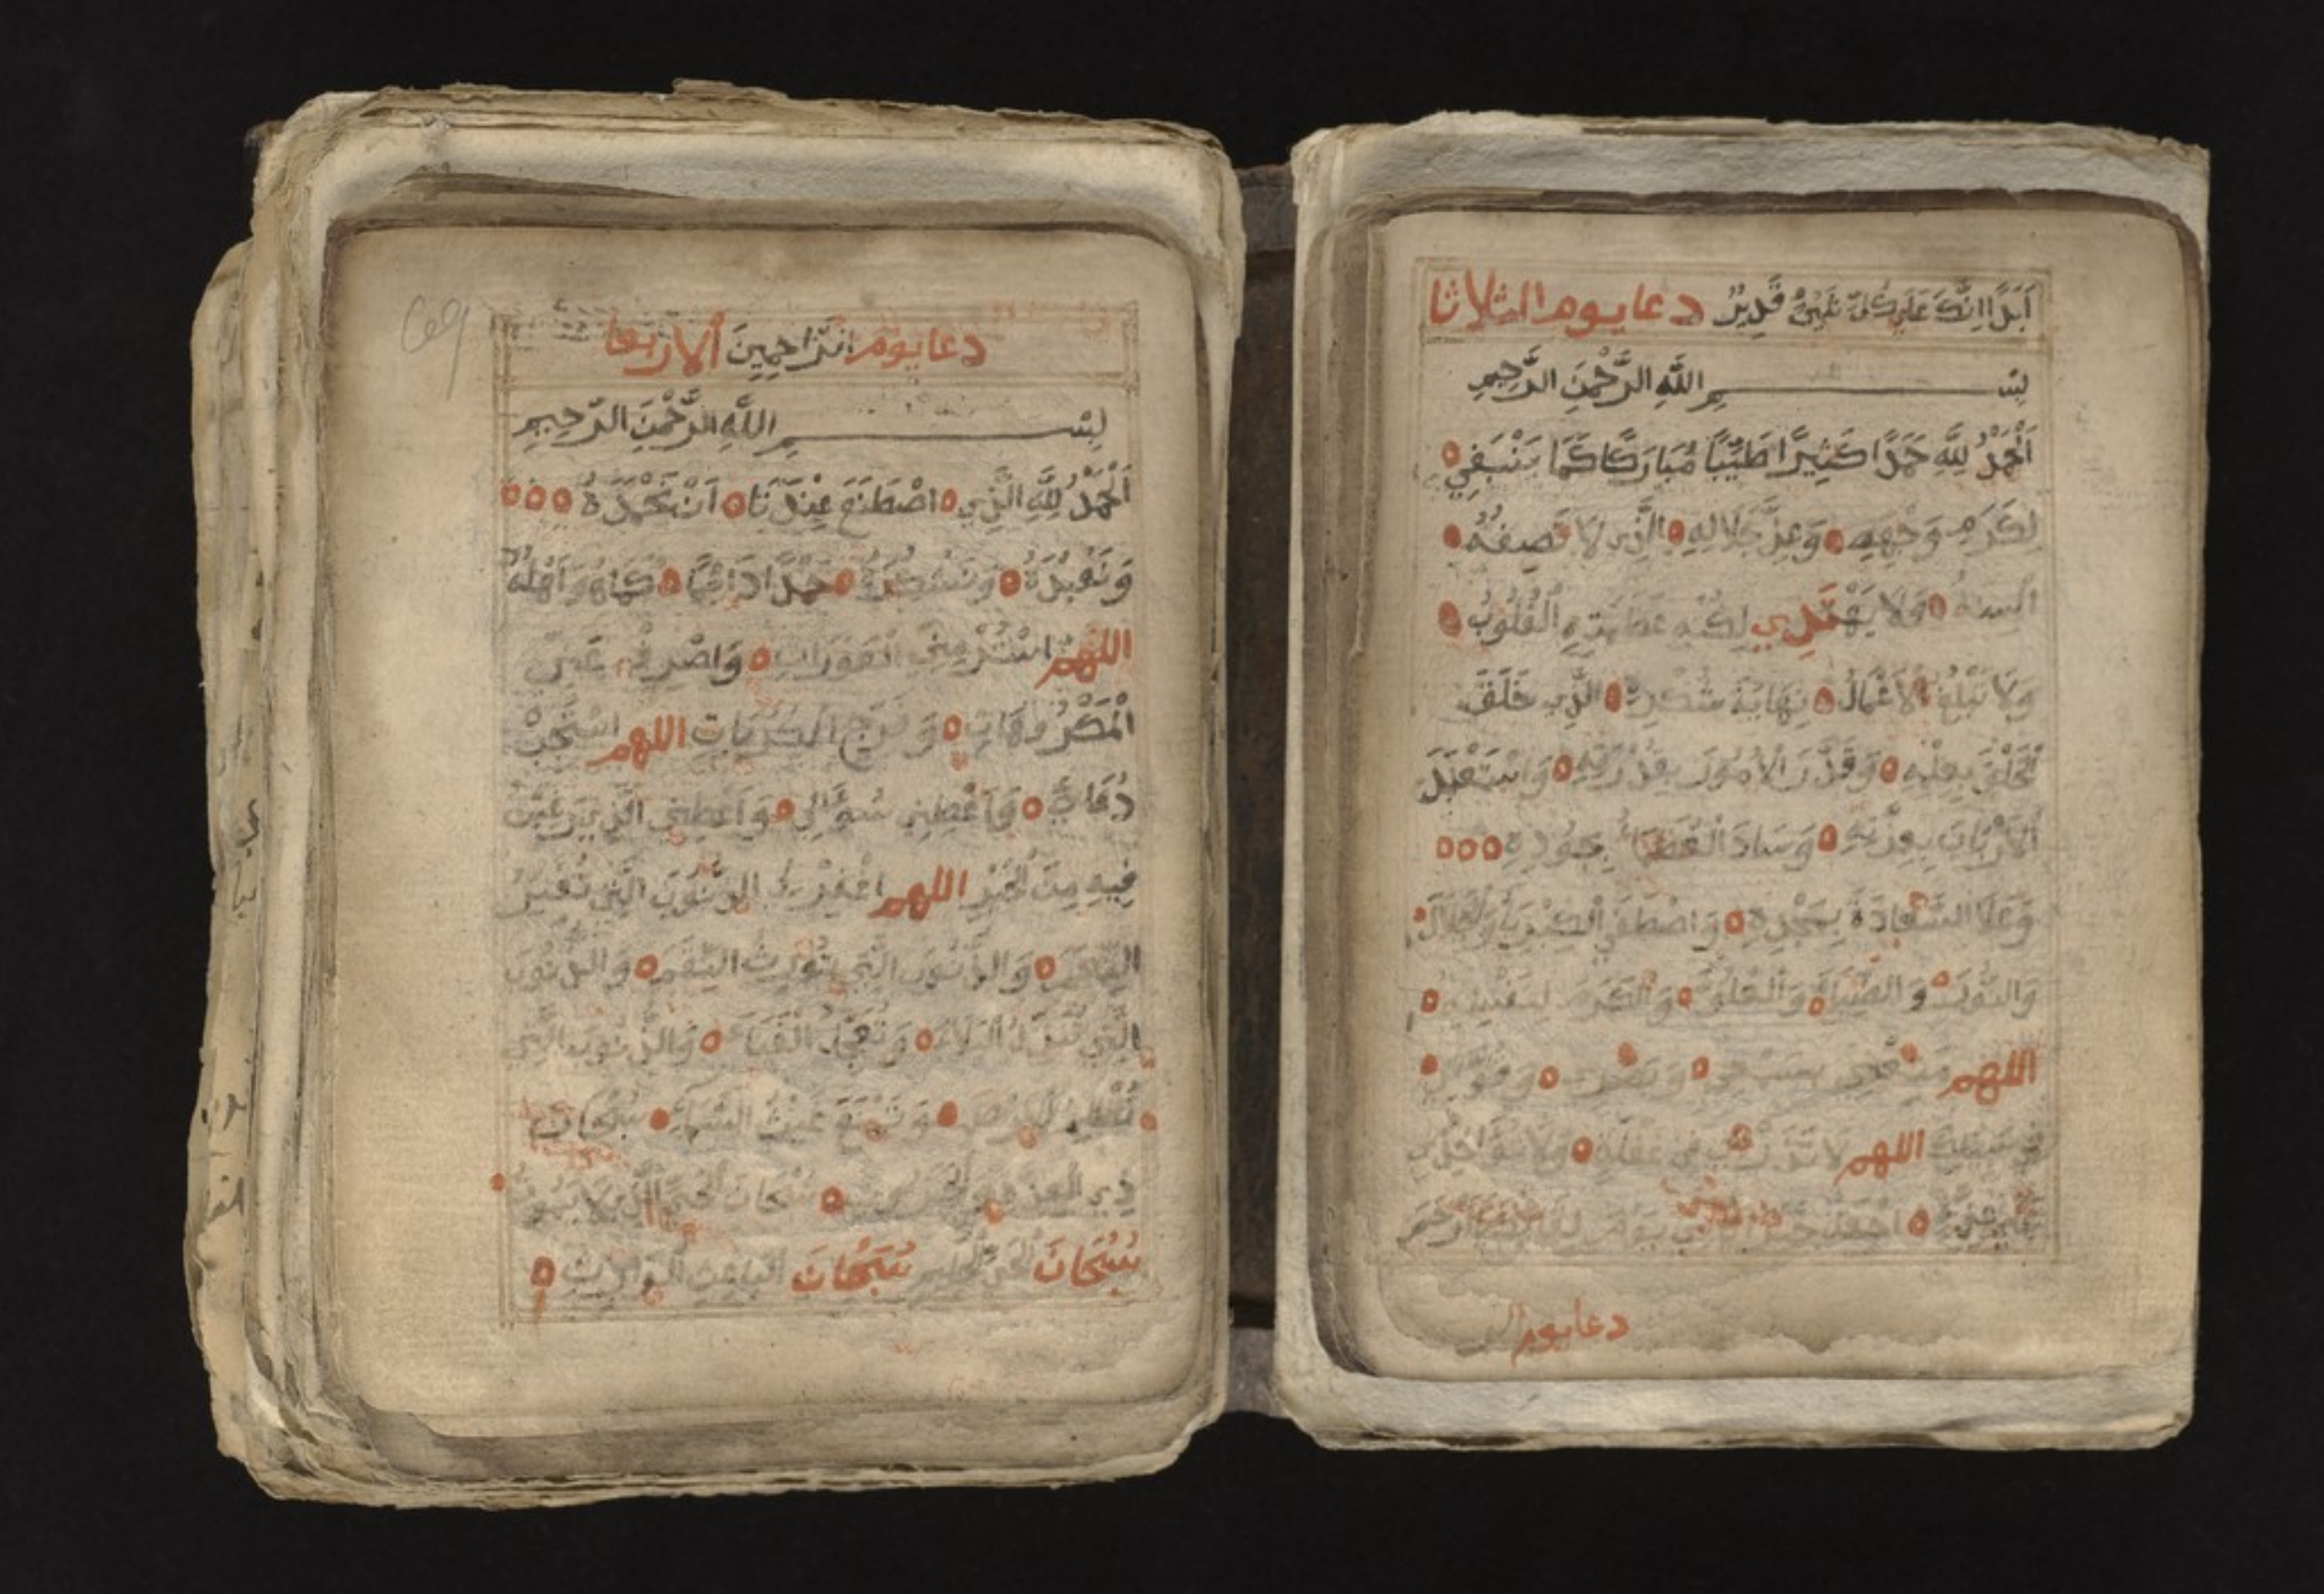 اَبَدًا اِنَّكَ عَلَى كُلِّ شَيْءٍ قَدِيرٌ دعا يوم الثلاثا
بِسْــــمِ اللَّهِ الرَّحْمَنِ الرَّحِيمِ
اَلْحَمْدُ لِلَّهِ حَمْدًا كَثِيرًا طَيِّبًا مُبَارَكًا كَمَا يَنْبَغِي
لِكَرَمِ وَجْهِهِ وَعِزِّ جَلَالِهِ الَّذِي لَا تَصِفُهُ
اَلْسِنَةُ وَلَا يَهْتَدِي لِكُنْهِ عَظَمَتِهِ الْقُلُوبُ
وَلَا تَبْلُغُ الْاَعْمَالُ نِهَايَةَ شُكْرِهِ الَّذِي خَلَقَ
الْخَلْقَ بِعِلْمِهِ وَقَدَّرَ الْاُمُورَ بِقُدْرَتِهِ وَاسْتَعْبَدَ
اَلْاَرْبَابَ بِعِزَّتِهِ وَسَادَ الْعُظَمَاءَ بِجُودِهِ
وَعَلَا السَّادَةَ بِمَجْدِهِ وَاصْطَفَى الْكِبْرِيَاءَ وَالْجَلَالَ
وَالضِّيَاءَ وَالْعُلُوَّ وَالْكَرَمَ لِنَفْسِهِ
اللهم مَتِّعْنِي بِسَمْعِي وَبَصَرِي
اللهم لَا فِي غَفْلَةٍ وَلَا
دعا يوم الر
دعا يوم الراحِمِينَ الاربعا
بِسْــــمِ اللَّهِ الرَّحْمَنِ الرَّحِيمِ
اَلْحَمْدُ لِلَّهِ الَّذِي اصْطَنَعَ عِنْدَنَا اَنْ نَحْمَدَهُ
وَنَعْبُدَهُ وَنَشْكُرَهُ حَمْدًا دَائِمًا كَمَا هُوَ اَهْلُهُ
اللهم اسْتُرْ مِنِّي الْعَوْرَاتِ وَاصْرِفْ عَنِّي
الْمَكْرُوهَاتِ وَفَرِّجِ الْكُرُبَاتِ اللهم اسْتَجِبْ
دُعَائِي وَاَعْطِنِي سُؤَالِي وَاَعْطِنِي الَّذِي رَغِبْتُ
فِيهِ مِنَ الْخَيْرِ اللهم اغْفِرْ لِي الذُّنُوبَ الَّتِي تُغَيِّرُ
النِّعَمَ وَالذُّنُوبَ الَّتِي تُورِثُ النِّقَمَ وَالذُّنُوبَ
الَّتِي تُنْزِلُ الْبَلَاءَ وَتُعَجِّلُ الْفَنَاءَ وَالذُّنُوبَ الَّتِي
وَتَمْنَعُ غَيْثَ السَّمَاءِ سُبْحَانَ
ذِي الْعِزَّةِ وَالْجَبَرُوتِ سُبْحَانَ الْحَيِّ الَّذِي لَا يَمُوتُ
سُبْحَانَ الْحَيِّ الْحَلِيمِ سُبْحَانَ الْبَاعِثِ الْوَارِثِ